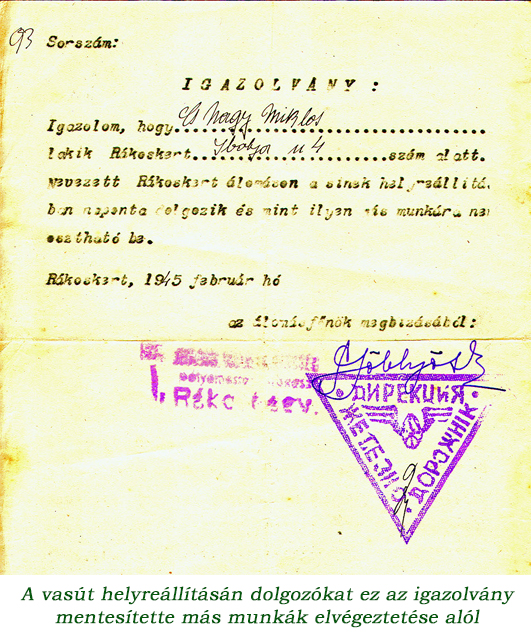 93 Sorszám:
IGAZOLVÁNY:
Igazolom, hogy Nagy Miklos
lakik Rákoskert u 4 szám alatt.
nevezett Rákoskert álomáson a sinek helyreállitá
ban naponta dolgozik és mint ilyen más munkára nem
osztható be.
Rákoskert, 1945 február hó
az álomásfőnök megbizásából:
ДИРЕКЦИЯ
ЖЕТЕЗНО
ДОРОЖНІК
A vasút helyreállításán dolgozókat ez az igazolvány
mentesítette más munkák elvégeztetése alól